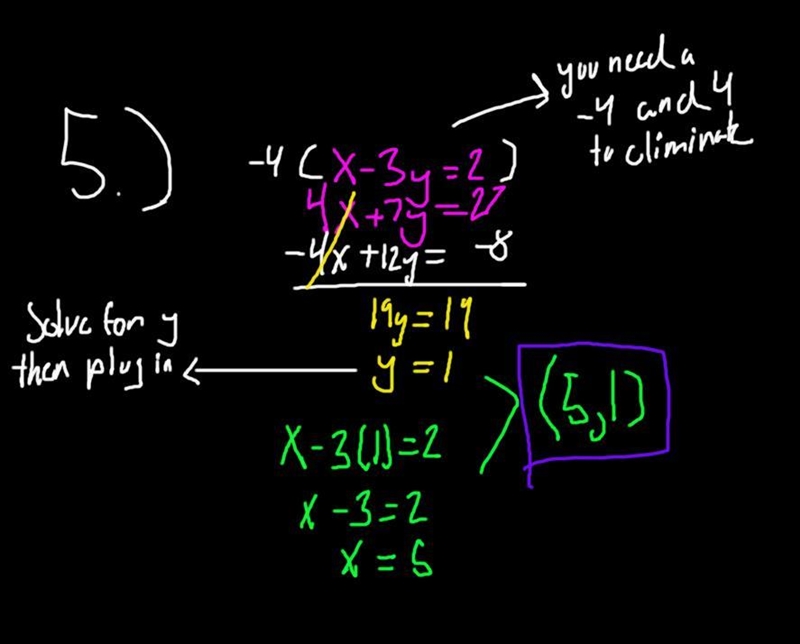 5.)
-4(x-3y=2)
4x+7y=27
-4x+12y= -8
19y=19
y=1
you need a
-4 and 4
to eliminate
Solve for y
then plug in
x-3(1)=2
x-3=2
x=5
(5,1)